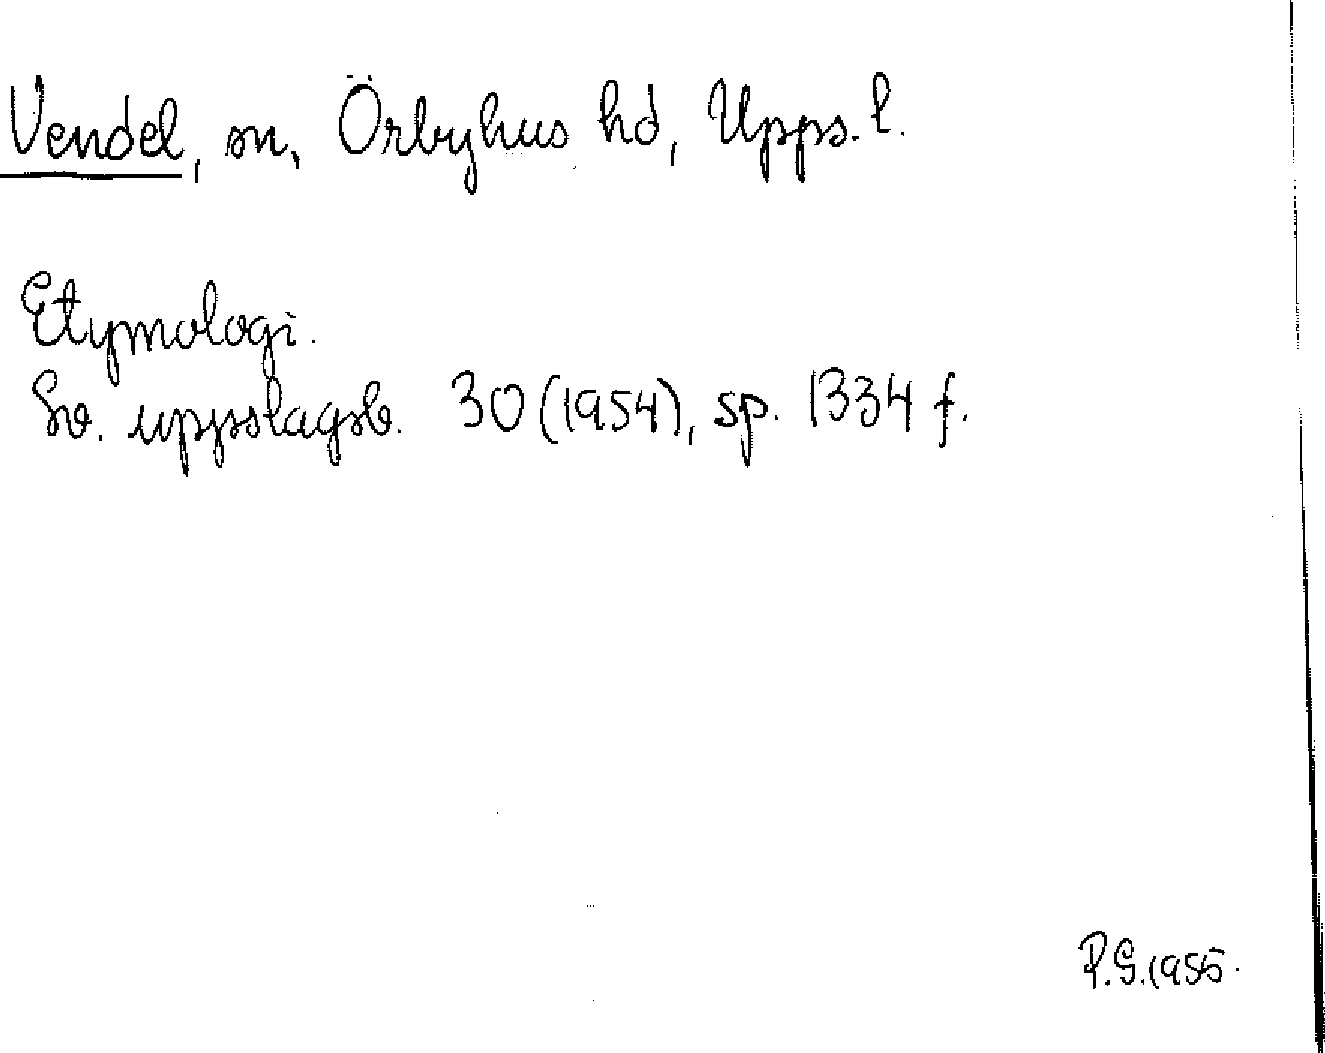 Vendel, sn, Örbyhus hd, Upps. l.
Etymologi.
Sv. uppslagsb. 30 (1954), sp. 1334 f.
P.G. 1955.